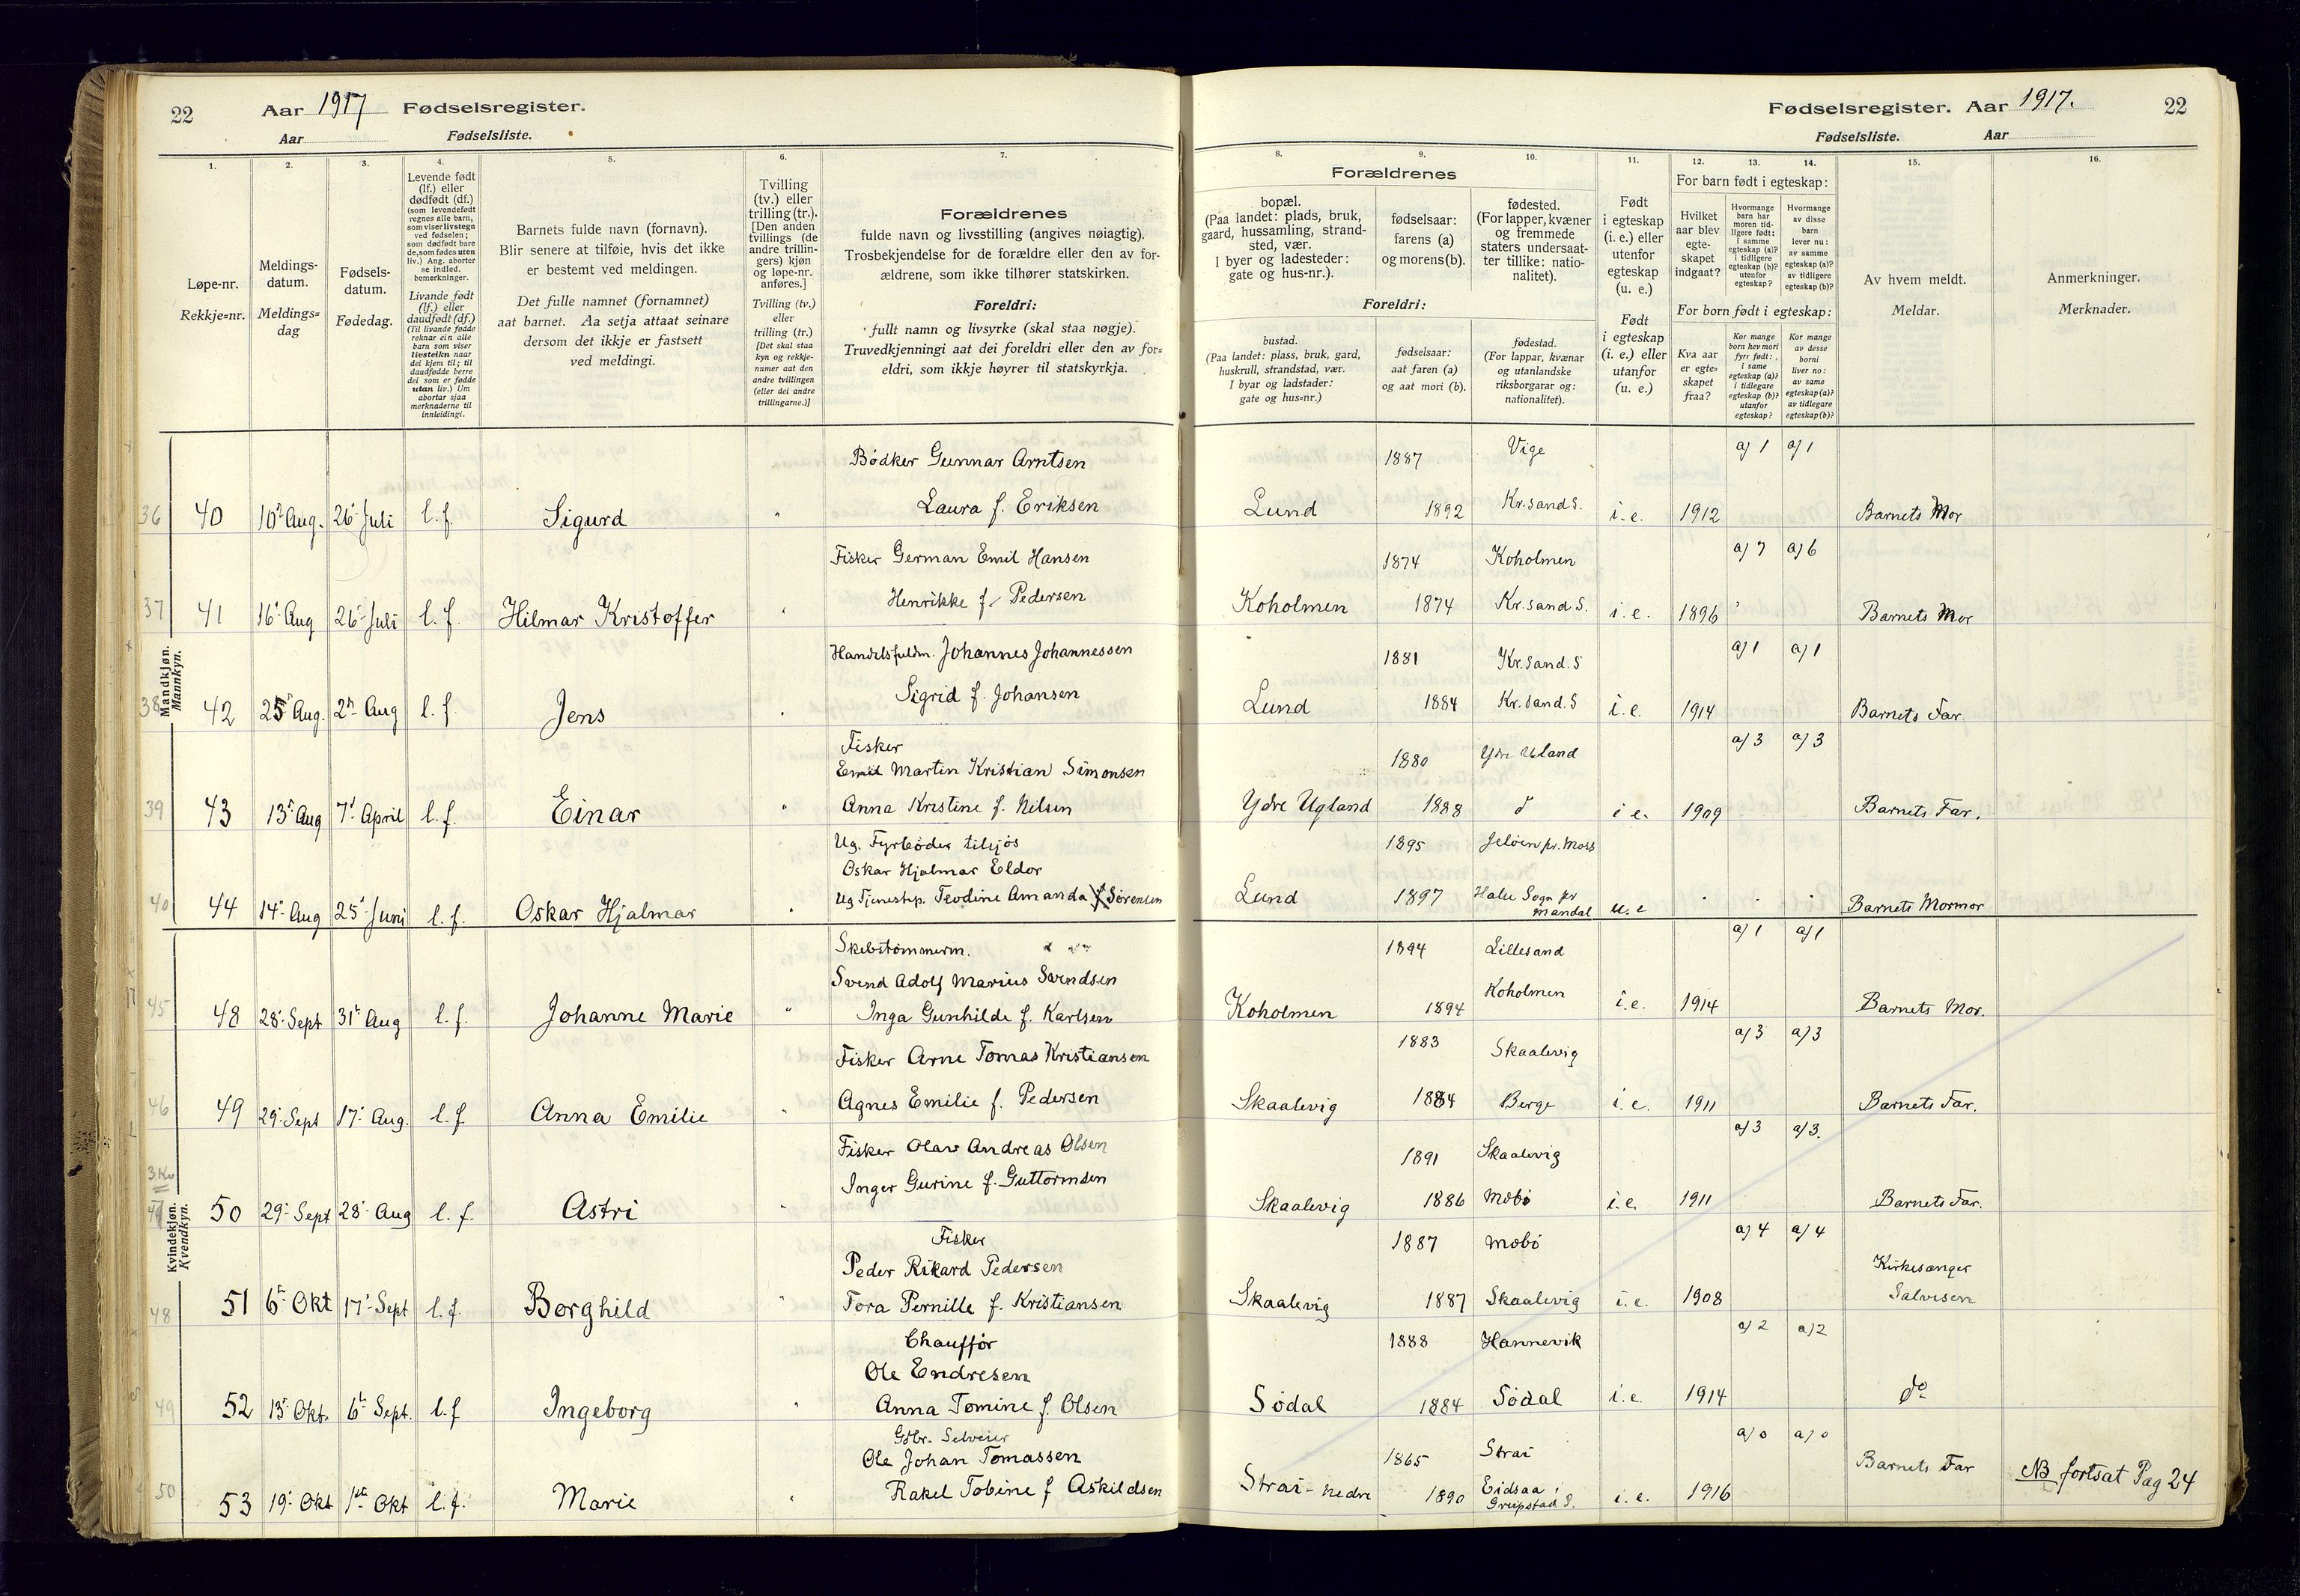 22 Aar 1917 Fødselsregister.
Aar Fødselsliste.
1. 2. 3. 4. 5. 6. 7.
Løpe-nr.
Rekkje=nr.
Meldings-
datum.
Meldings=
dag
Fødsels-
datum.
Fødedag.
Levende født
(lf.) eller
dødfødt (df.)
(som levendefødt
regnes alle barn,
som viser livstegn
ved fødselen;
som dødfødt bare
de, som fødes uten
liv.) Ang. aborter
se indled.
bemerkninger.
Livande født
(lf.) eller
daudfødt (df.)
(Til livande fødde
reknar ein alle
barn som viser
livsteikn naar
dei kjem til; til
daudfødde berre
dei som er fødde
utan liv.) Um
abortar sjaa
merknaderne til
innleidingi.
Barnets fulde navn (fornavn).
Blir senere at tilføie, hvis det ikke
er bestemt ved meldingen.
Det fulle namnet (fornamnet)
aat barnet. Aa setja attaat seinare
dersom det ikkje er fastsett
ved meldingi.
Tvilling
(tv.) eller
trilling (tr.).
[Den anden
tvillings (de
andre trillin-
gers) kjøn
og løpe-nr.
anføres.]
Tvilling (tv.)
eller
trilling (tr.)
[Det skal staa
kyn og rekkje-
numer aat den
andre tvillingen
(eller dei andre
trillingarne.)]
Forældrenes
fulde navn og livsstilling (angives nøiagtig).
Trosbekjendelse for de forældre eller den av for-
ældrene, som ikke tilhører statskirken.
Foreldri:
fullt namn og livsyrke (skal staa nøgje).
Truvedkjenningi aat dei foreldri eller den av for=
eldri, som ikkje høyrer til statskyrkja.
Mandkjøn.
Mannkyn.
Bødker Gunnar Arntsen
36 40 10' Aug. 26' Juli l. f. Sigurd " Laura f. Eriksen
Fisker German Emil Hansen
37 41 16' Aug 26' Juli l. f. Hilmar Kristoffer " Henrikke f. Pedersen
Johannes Johannessen
38 42 25' Aug. 2n Aug l. f. Jens " Sigrid f. Johansen
Fisker
Emil Martin Kristian Simonsen
39 43 13' Aug 7' April l. f. Einar " Anna Kristine f. Nilsen
Ug. Fyrbøder tilsjøs
Oskar Hjalmar Eldor
40 44 14' Aug 25' Juni l. f. Oskar Hjalmar " Ug Tjenestep. Teodine Amanda Sørensen
Kvindekjøn.
Kvendkyn.
Skibstømmerm.
Svend Adolf Marius Svendsen
45 48 28' Sept 31' Aug l. f. Johanne Marie " Inga Gunhilde f. Karlsen
Fisker Arne Tomas Kristiansen
46 49 29' Sept 17' Aug. l. f. Anna Emilie " Agnes Emilie f. Pedersen
Fisker Olav Andreas Olsen
Inger Gurine f. Guttormsen
3. Kv
47 50 29' Sept 28' Aug l. f. Astri "
Fisker
Peder Rikard Pedersen
48 51 6' Okt 17' Sept l. f. Borghild " Tora Pernille f. Kristiansen
Chauffør
Ole Endresen
49 52 13' Okt. 6' Sept. l. f Ingeborg " Anna Tomine f. Olsen
Gbr. Selveier
Ole Johan Tomassen
50 53 19' Okt 1ste Okt l. f. Marie " Rakel Tobine f Askildsen
Fødselsregister. Aar 1917. 22
Fødselsliste. Aar
8. 9. 10. 11. 12. 13. 14. 15. 16.
Forældrenes
bopæl.
(Paa landet: plads, bruk,
gaard, hussamling, strand-
sted, vær.
I byer og ladesteder:
gate og hus-nr.).
fødselsaar:
farens (a)
og morens (b).
fødested.
(For lapper, kvæner
og fremmede
staters undersaat-
ter tillike: natio-
nalitet).
Foreldri:
bustad.
(Paa landet: plass, bruk, gard,
huskrull, strandstad, vær.
I byar og ladstader:
gate og hus-nr.)
fødselsaar:
aat faren (a)
og aat mori (b).
fødestad.
(For lappar, kvænar
og utanlandske
riksborgarar og:
nationalitet).
Født
i egteskap
(i. e.) eller
utenfor
egteskap
(u. e.)
Født
i egteskap
(i. e.) eller
utanfor
egteskap
(u. e.)
For barn født i egteskap:
Hvilket
aar blev
egte-
skapet
indgaat?
Hvormange
barn har
moren tid-
ligere født:
i samme
egteskap (a)?
i tidligere
egteskap (b)?
utenfor
egteskap?
Hvormange
av disse
barn
lever nu:
av samme
egteskap (a)?
av tidligere
egteskap (b)?
For born født i egteskap:
Kva aar
er egte-
skapet
fraa?
Kor mange
born hev mori
fyrr født:
i same
egteskap (a)?
i tidlegare
egteskap (b)?
utanfor
egteskap?
Kor mange
av desse
borni
liver no:
av same
egteskap (a)?
av tidlegare
egteskap (b)?
Av hvem meldt.
Meldar.
Anmerkninger.
Merknader.
1887 Vige a) 1 a) 1
Lund 1892 Kr.sand S. i. e. 1912 Barnets Mor
1874 Koholmen a) 7 a) 6
Koholmen 1874 Kr.sand S. i. e. 1896 Barnets Mor
1881 Kr.sand. S a) 1 a) 1
Lund 1884 Kr.sand. S i. e. 1914 Barnets Far.
1880 Ydre Ugland a) 3 a) 3
Ydre Ugland 1888 d i e. 1909 Barnets Far.
1895 Jeløen pr. Moss
Lund 1897 Halse Sogn pr
Mandal u. e . . . Barnets Mormor
1894 Lillesand a) 1 a) 1
Koholmen 1894 Koholmen i. e. 1914 Barnets Mor.
1883 Skaalevig a) 3 a) 3
Skaalevig 1884 Berge i. e. 1911 Barnets Far.
1891 Skaalevig a) 3 a) 3.
Skaalevig 1886 Mobø i. e. 1911 Barnets Far.
1887 Mobø a) 4 a) 4 Kirkesanger
Skaalevig 1887 Skaalevig i. e. 1908 Salvesen
1888 Hannevik a) 2 a) 2
Sødal 1884 Sødal i. e. 1914 do
1865 Strai a) 0 a) 0
Strai - nedre 1890 Eidsaa i
i. e. 1916 Barnets Far NB fortsat Pag 24